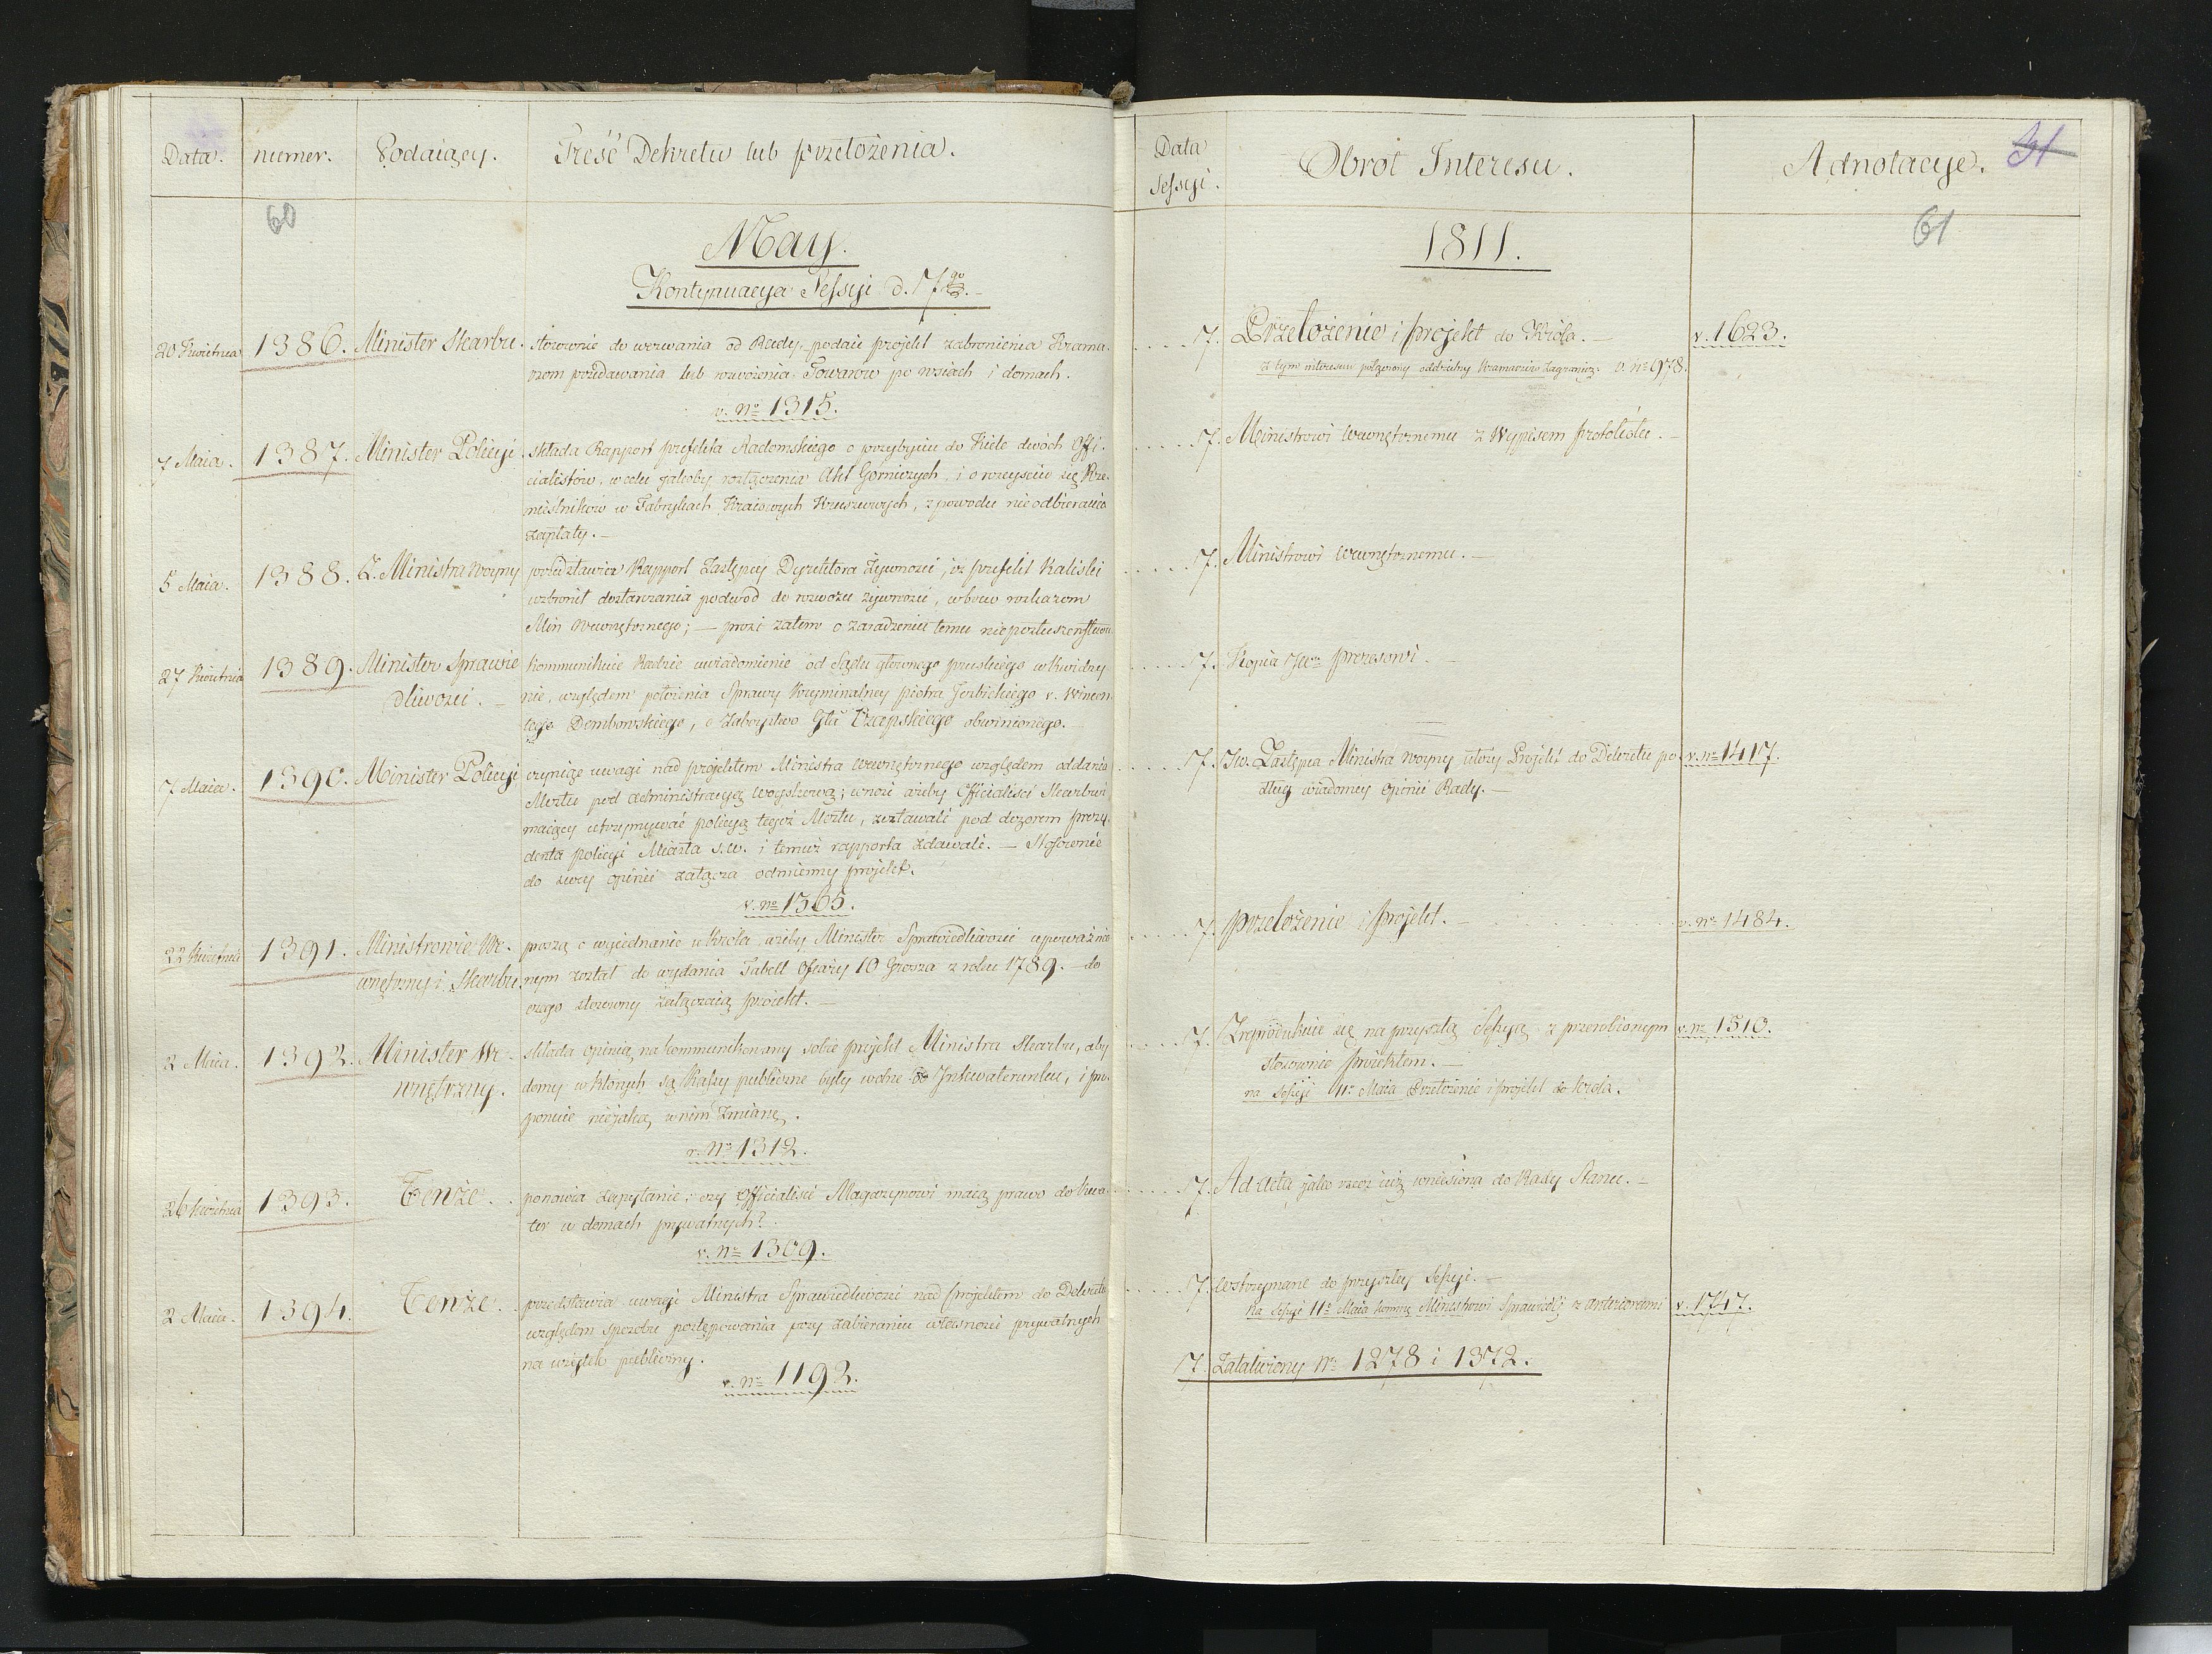 Data.
numer.
Podaiący.
Treść Dekretu lub przełożenia.
60
May.
Kontynuacya Sessyi d. 7go
20 Kwietnia
1386.
Minister Skarbu.
stosownie do wezwania od Rady, podaie projekt zabronienia Krama-
rzom przedawania lub rozwożenia Towarów po wsiach i domach.
v. No 1315.
7 Maia.
1387.
Minister Policyi.
składa Rapport prefekta Radomskiego o przybyciu do Kielc dwóch Offi-
cialistów, w celu jakoby rozłączenia Akt Górniczych, i o rozeyściu się Rze-
mieślników w Fabrykach Kraiowych Kruszcowych, z powodu nieodbierania
zapłaty.
5 Maia.
1388.
Z. Ministra Woyny
przedstawia Rapport Zastępcy Dyrektora Żywności, iż prefekt Kaliski
wzbronił dostarczania podwód do rozwozu żywności, wbrew rozkazom
Min Wewnętrznego; — prosi zatem o zaradzenie temu nieposłuszeństwu.
27 Kwietnia
1389.
Minister Sprawie
dliwości.
kommunikuie Radzie uwiadomienie od Sądu głównego pruskiego w Kwidzy-
nie, względem położenia Sprawy Kryminalney Piotra Jerbickiego v. Wincen-
tego Dembowskiego, o zaboystwo Gła Czapskiego obwinionego.
7 Maia.
1390.
Minister Policyi
czyniąc uwagi nad projektem Ministra Wewnętrznego względem oddania
Mostu pod administracyą Woyskową; wnosi ażeby Officialisci Skarbowi
maiący utrzymywać policyą tegoż Mostu, zostawali pod dozorem prezy-
denta policyi Miasta s.w. i temuż rapporta zdawali. — Stosownie
do swey opinii załącza odmienny projekt.
v. no 1365.
22 Kwietnia
1391.
Ministrowie We-
wnętrzny i Skarbu
proszą o wyiednanie u Króla, ażeby Minister Sprawiedliwości upoważnio-
nym został do wydania Tabell Ofiary 10 Grosza z roku 1789. — do
czego stosowny załączaią proiekt. —
2 Maia.
1392.
Minister We-
wnętrzny.
składa opinią na kommunikowany sobie projekt Ministra Skarbu, aby
domy w których są Kassy publiczne były wolne od Inkwaterunku, i pro-
ponuie niejaką w nim zmianę.
v. No 1312.
26 Kwietnia
1393.
Tenże.
ponawia zapytanie; czy Officialisci Magazynowi maią prawo do kwa-
ter w domach prywatnych?
v. No 1309.
2 Maia.
1394.
Tenże.
przedstawia uwagi Ministra Sprawiedliwości nad projektem do Dekretu
względem sposobu postępowania przy zabieraniu własności prywatnych
na użytek publiczny.
v. No 1193.
Data
Sessyi.
Obrot Interesu.
Adnotacye.
31
61
1811.
7.
Przełożenie i projekt do Króla.
v. 1623.
Z tym interesem połączony oddzielny Kramarzów Zagranicz. v. no 978.
7.
Ministrowi Wewnętrznemu z Wypisem protokółu. —
7.
Ministrowi Wewnętrznemu. —
7.
Kopia JW. Prezesowi. —
7.
JW. Zastępca Ministra Woyny ułoży Projekt do Dekretu po-
v. no 1417.
dług wiadomey opinii Rady. —
7.
przełożenie i projekt. —
v. No 1484.
7.
Zreprodukuie się na przyszłą Sessyą z przerobionym
v. no 1510.
stosownie proiektem. —
na Sessyi 11o Maia Przełożenie i projekt do Króla.
7.
Ad Acta jako rzecz iuż wniesiona do Rady Stanu. —
7.
Wstrzymane do przyszłey Sessyi. —
Na Sessyi 11o Maia komun. Ministrowi Sprawiedli z anteriorami
v. 1747.
7.
Załatwiony No 1278 i 1372.